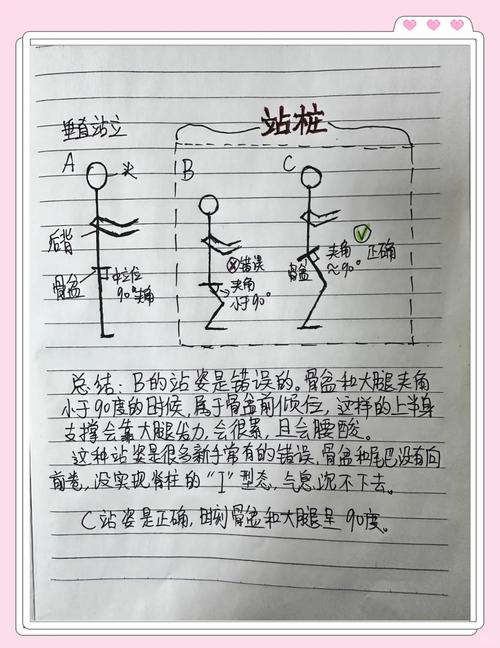 站桩
垂直站立
A
头
后背
骨盆
中立位
90°夹角
B
错误
夹角
小于90°
C
骨盆
夹角
≈90°
正确
总结：B的站姿是错误的。骨盆和大腿夹角
小于90度的时候，属于骨盆前倾位，这样的上半身
支撑会靠大腿发力，会很累，且会腰酸。
这种站姿是很多新手常有的错误，骨盆和尾巴没有向
前卷，没实现脊柱的“I”型态，气息沉不下去。
C站姿是正确，时刻骨盆和大腿呈 90度。